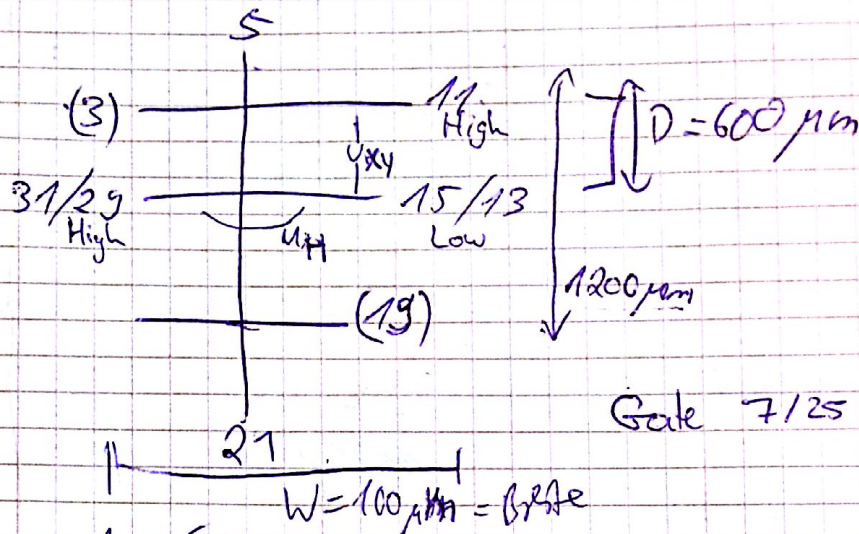 5
(3)
11
High
D = 600 µm
U_xy
31/29
High
15/13
Low
U_H
1200 µm
(19)
Gate 7/25
21
W = 100 µm = Breite